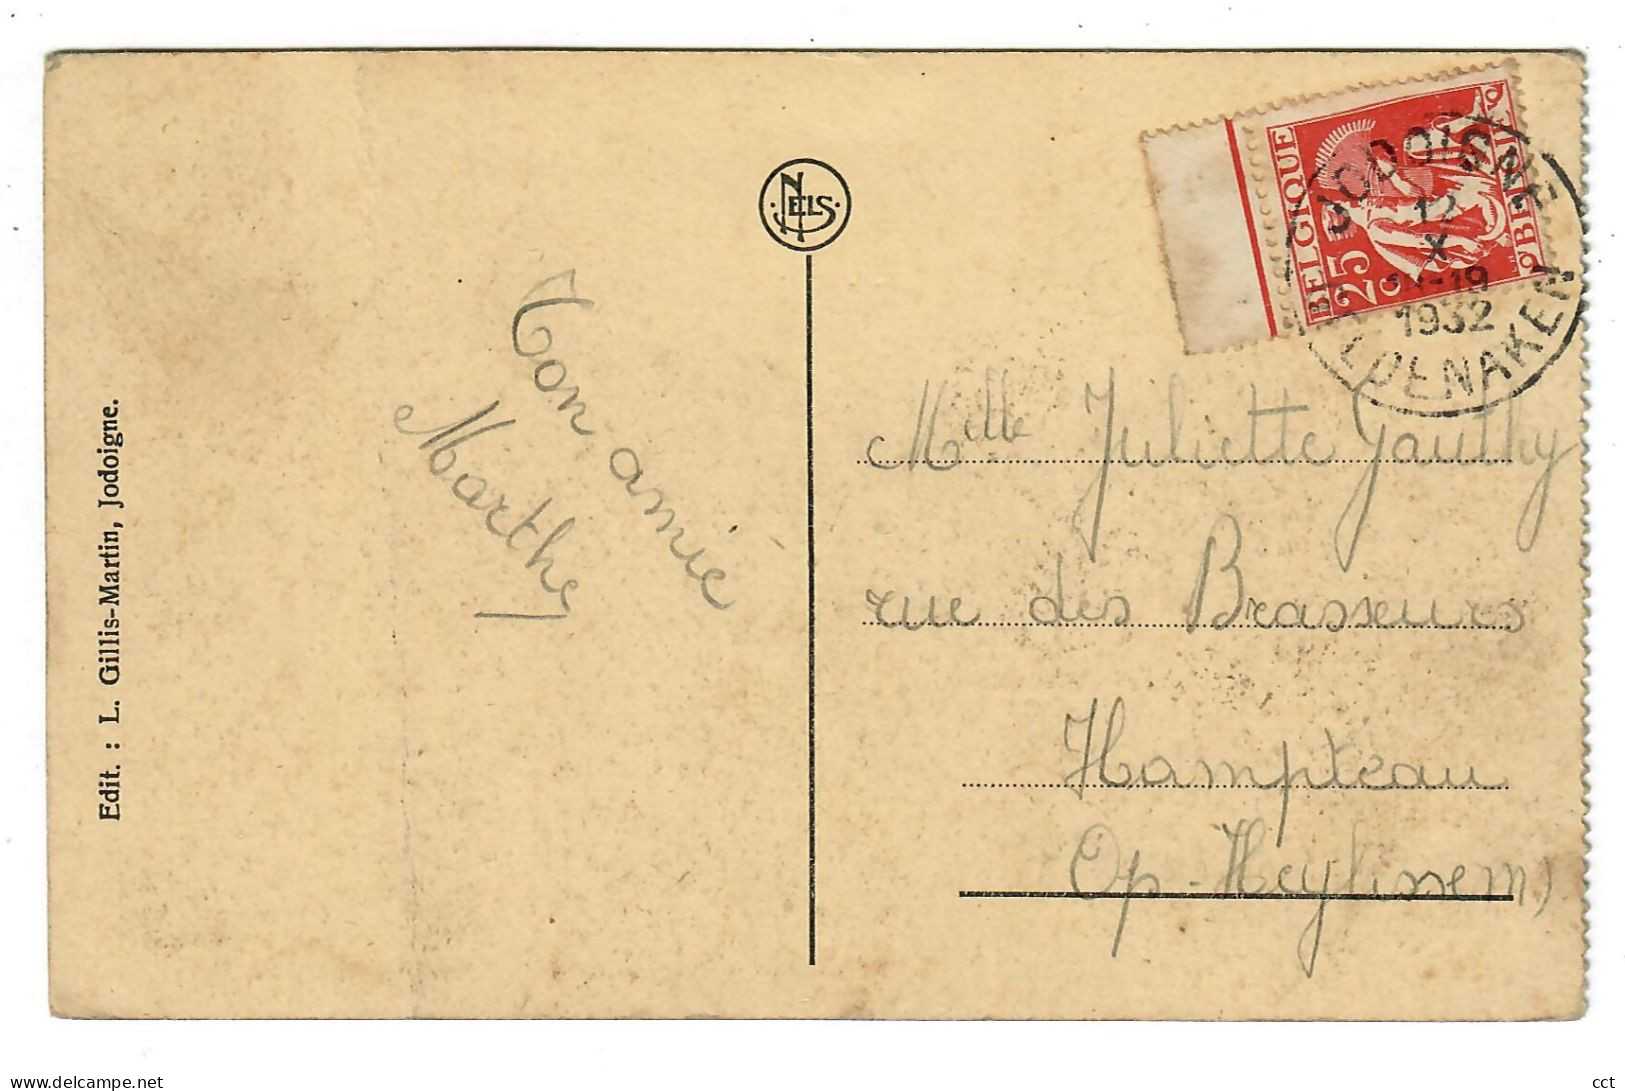 Edit. : L. Gillis-Martin, Jodoigne.
Ton amie
Marthe
NELS
BELGIQUE
25 c
BELGIE
JODOIGNE
12
X
-19
1932
GELDENAKEN
Melle Juliette Gauthy
rue des Brasseurs
Hampteau
Op-Heylissem)
delcampe.net
cct